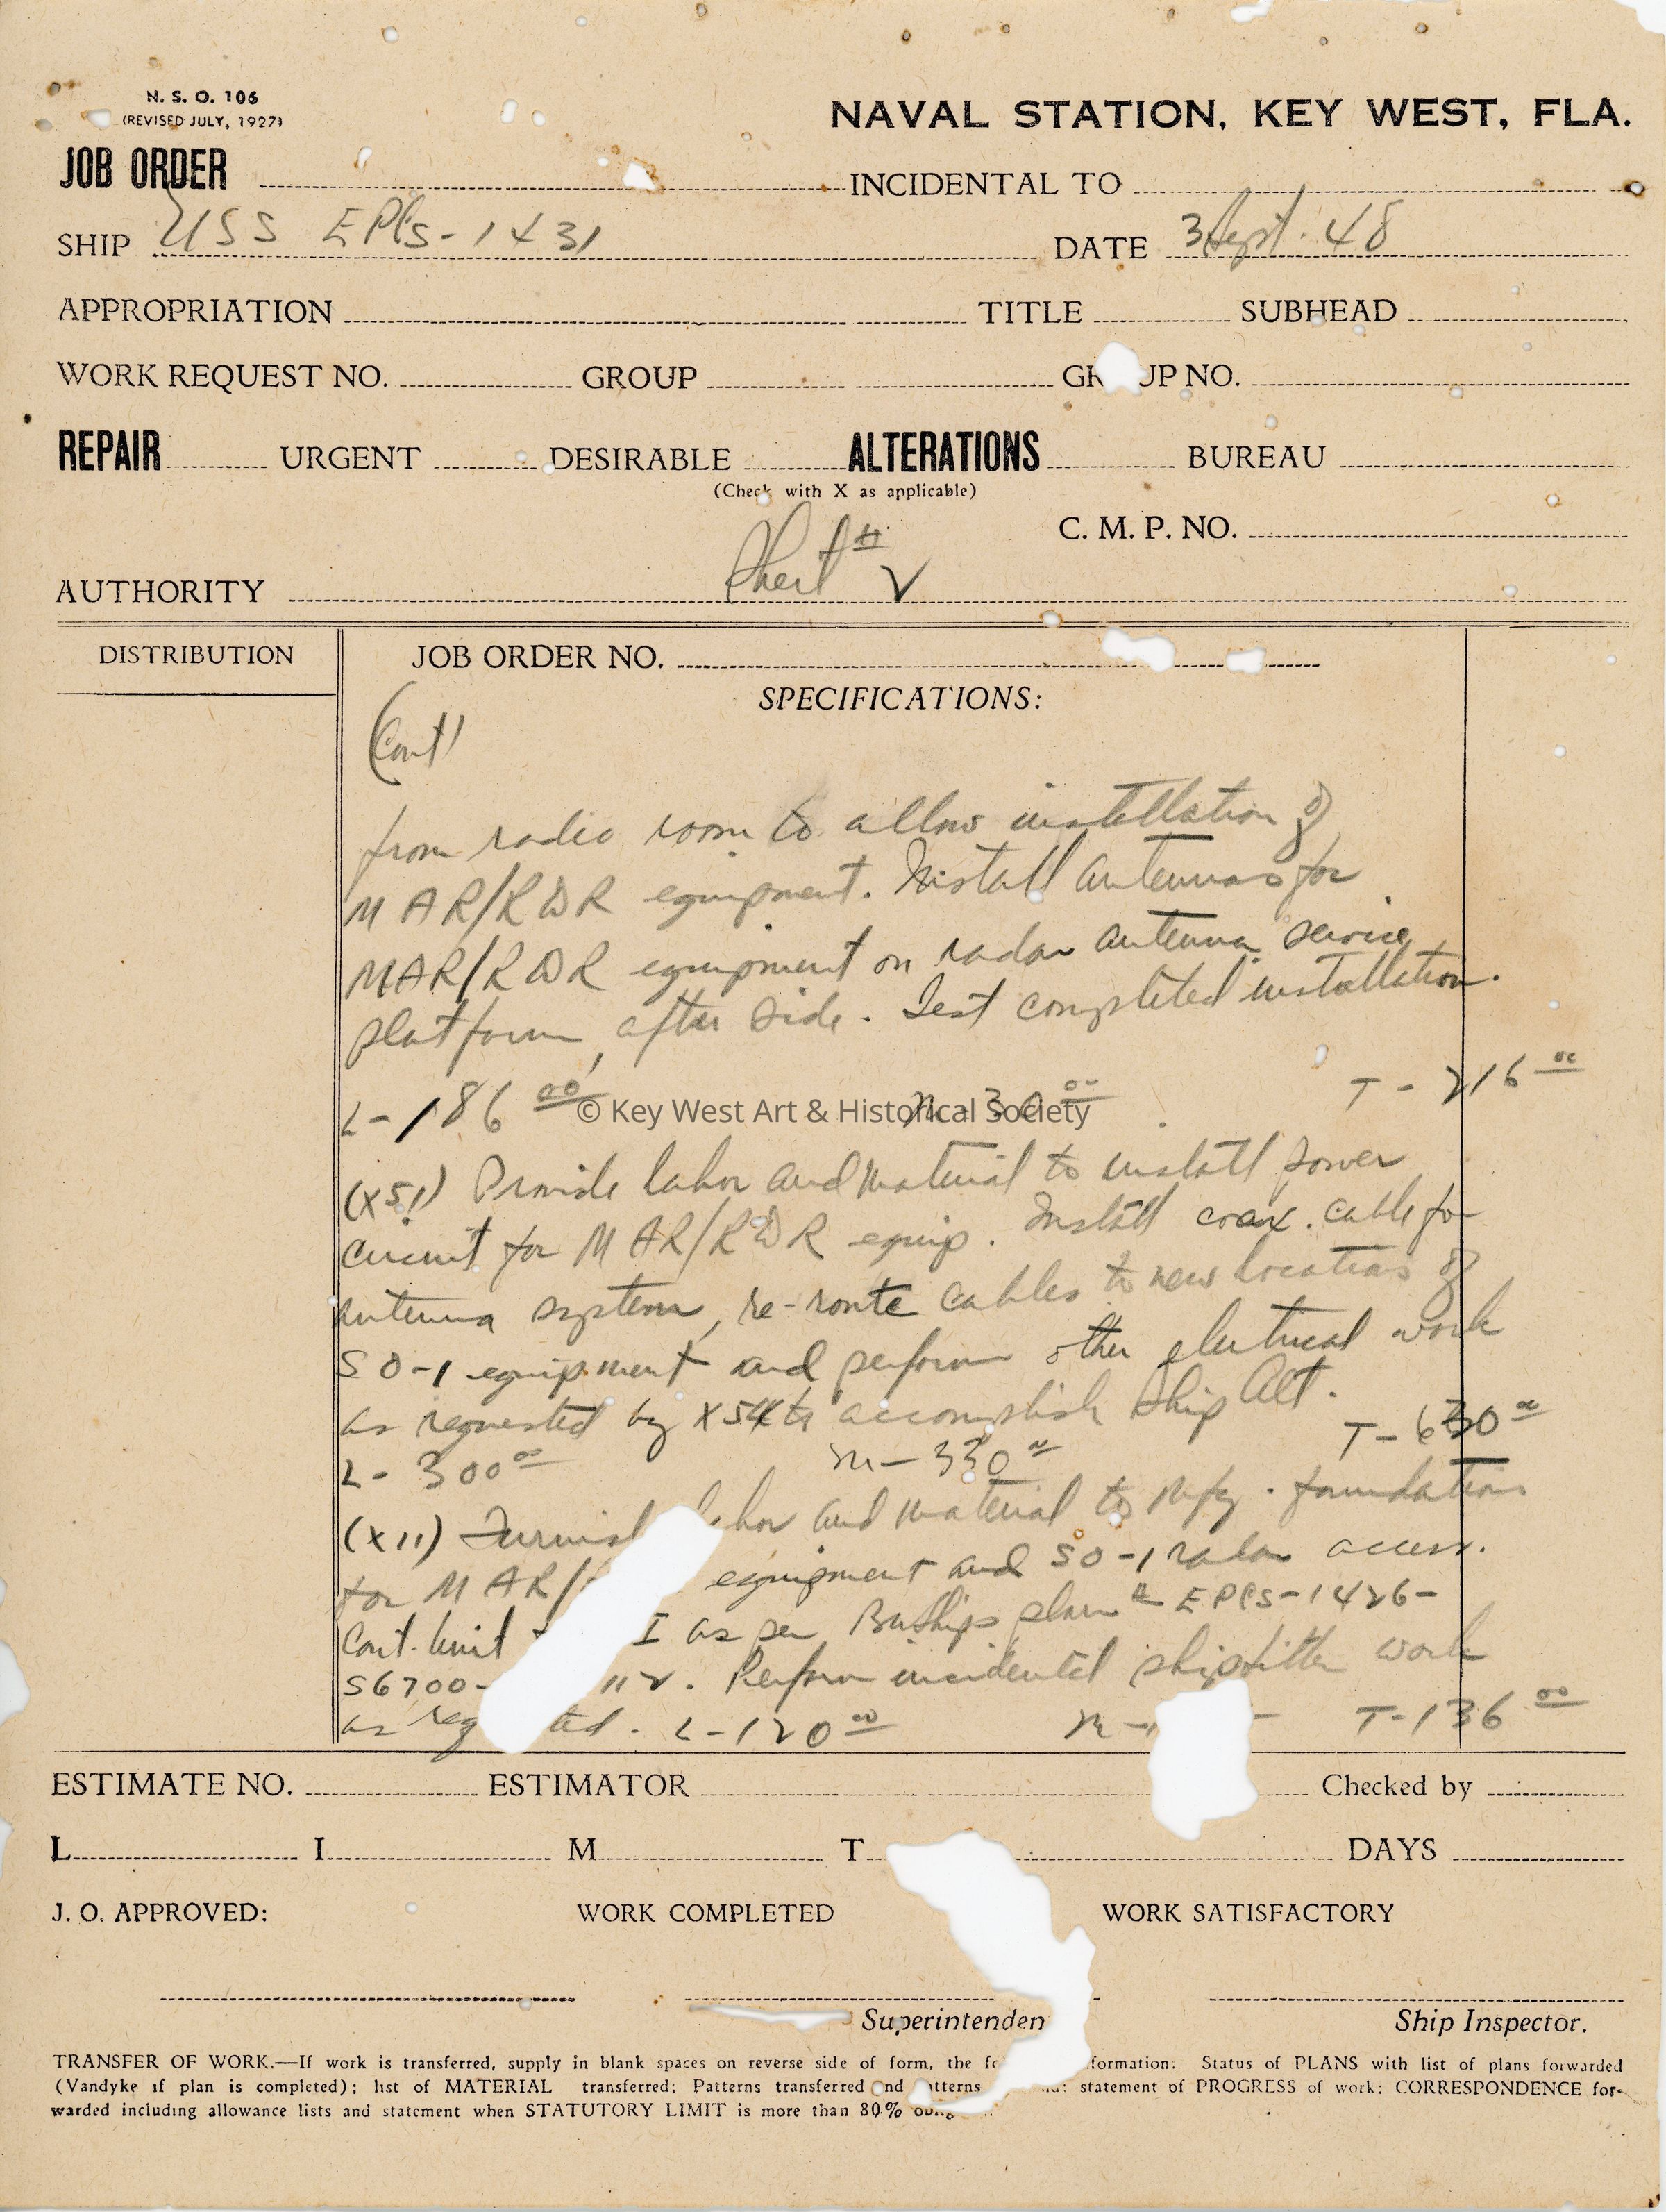 N. S. O. 106
(REVISED JULY, 1927)
NAVAL STATION, KEY WEST, FLA.
JOB ORDER INCIDENTAL TO
SHIP USS EPCS-1431 DATE 3 Sept. 48
APPROPRIATION TITLE SUBHEAD
WORK REQUEST NO. GROUP GR UP NO.
REPAIR URGENT DESIRABLE ALTERATIONS BUREAU
(Check with X as applicable)
C. M. P. NO.
Sheet # 2
AUTHORITY
DISTRIBUTION JOB ORDER NO.
SPECIFICATIONS:
(Cont'
from radio room to allow installation of
MAR/RDR equipment. Install antennas for
MAR/RDR equipment on radar antenna service
platform, after side. Test completed installation.
L-186 00 M-30 00 T-216 00
© Key West Art & Historical Society
(X51) Provide labor and material to install power
circuit for MAR/RDR equip. Install coax. cable for
antenna system, re-route cables to new location of
SO-1 equipment and perform other electrical work
as requested by to accomplish Ship Alt.
L-300 00 M-330 00 T-630 00
(X11) Furnish labor and material to mfg. foundations
for MAR/ equipment and SO-1 radar access.
Cont. Unit I as per BuShips plan # EPCS-1426-
S6700- 112. Perform incidental shipfitter work
as req ted. L-120 00 M- T-136 00
ESTIMATE NO. ESTIMATOR Checked by
L I M T DAYS
J. O. APPROVED: WORK COMPLETED WORK SATISFACTORY
Superintenden Ship Inspector.
TRANSFER OF WORK.—If work is transferred, supply in blank spaces on reverse side of form, the formation: Status of PLANS with list of plans forwarded
(Vandyke if plan is completed); list of MATERIAL transferred; Patterns transferred and patterns statement of PROGRESS of work: CORRESPONDENCE for-
warded including allowance lists and statement when STATUTORY LIMIT is more than 80%